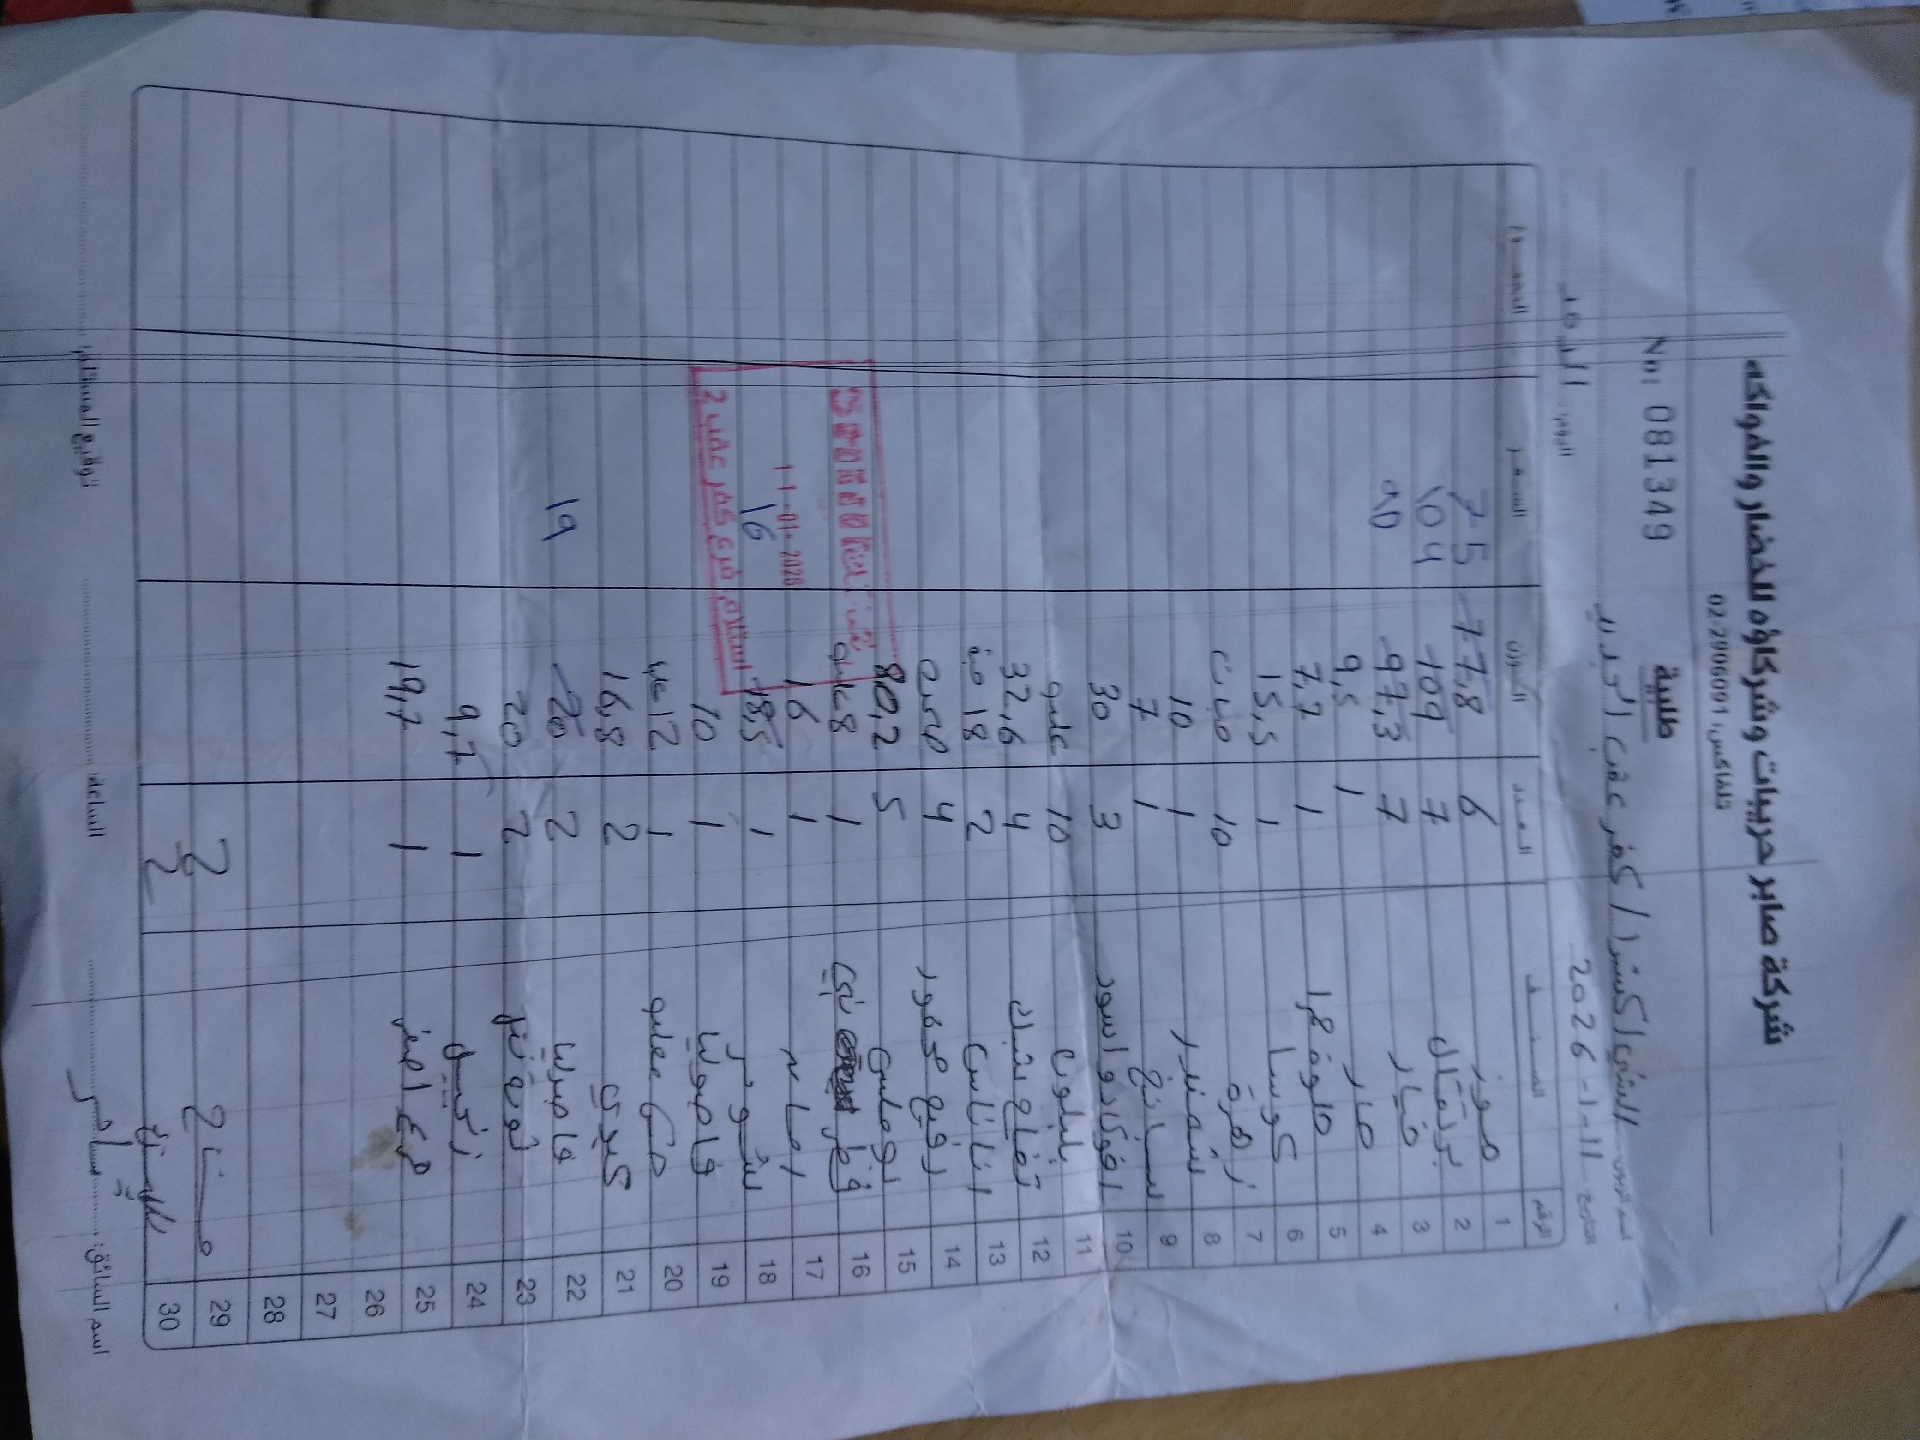 شركة صابر حربيات وشركاؤه للخضار والفواكه
تلفاكس: 02-2906091
طلبية
No: 081349
اسم الزبون: الشني اكسترا / كفر عقب الجديد
التاريخ: 11-1-2026 اليوم: الاحد
الرقم الصنف العدد الوزن السعر المجموع
1 موز 6 77,8 75
2 برتقال 7 109 104
3 خيار 7 97,3 90
4 خيار 1 9,5
5 ملوف حمرا 1 7,7
6 كوسا 1 15,5
7 زهرة 10 حبات
8 شمندر 1 10
9 سبانخ 1 7
10 افوكادو اسود 3 30
11 بليون 10 علبه
12 تفاح بنك 4 32,6
13 اناناس 2 18 حبة
14 رفيع محفور 4
15 بوملي 5 80,2
16 فطر بني 1 8 علبه
17 1 16
18 شومر 1 18,5 16
19 فاصوليا 1 10
20 علبه 1 12 علبه
21 كيوي 2 16,8
22 فاصوليا 2 20 19
23 2 20
24 زنجبيل 1 9,7
25 قرع اصفر 1 19,7
26
27
28
29 2
30 2
شني اكسترا
11-01-2026
استلام فرع كفر عقب 2
اسم السائق: الساعة: توقيع المستلم: